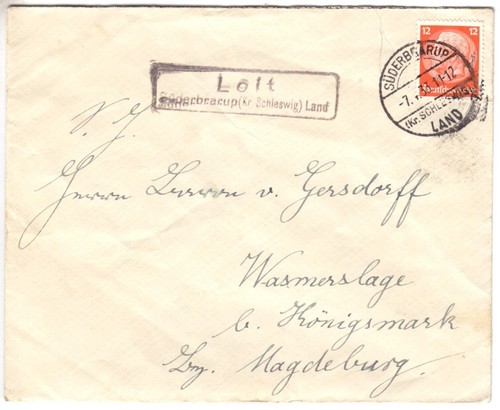 Loit
Süderbrarup (Kr. Schleswig) Land
12 12
Deutsches Reich
SÜDERBRARUP
-7. 11-12
(Kr. SCHLESW
LAND
S. H.
Herrn v. Gersdorff
Wasmerslage
b. Königsmark
Bz. Magdeburg.